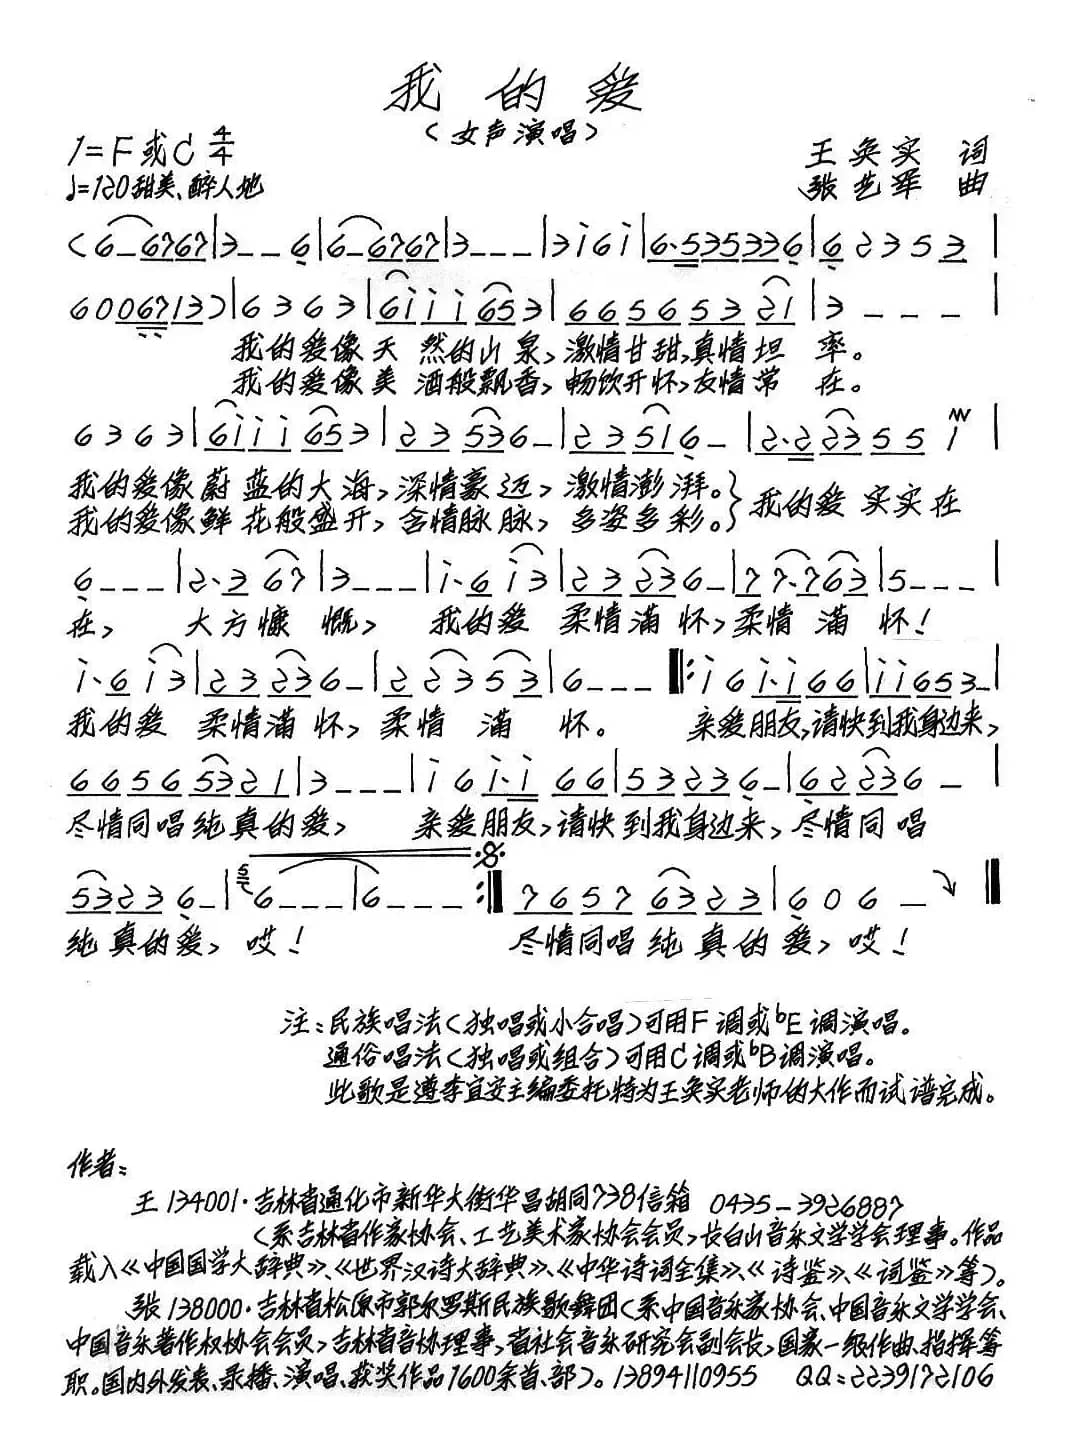 我的爱
(女声演唱)
1=F或C 4/4
♩=120 甜美、醉人地
王奂实 词
张艺军 曲
(6-6767|3---6|6-6767|3---|3i6i|6·535336|62353|
6006713)|6363|6iii653|66565321|3---|
我的爱像天然的山泉,激情甘甜,真情坦率。
我的爱像美酒般飘香,畅饮开怀,友情常在。
6363|6iii653|23536-|23516-|2·22355i|
我的爱像蔚蓝的大海,深情豪迈,激情澎湃。}我的爱实实在
我的爱像鲜花般盛开,含情脉脉,多姿多彩。
6---|2·367|3---|i·6i3|23236-|77·763|5---|
在,大方慷慨,我的爱柔情满怀,柔情满怀!
i·6i3|23236-|22353|6---‖:i6i·i66|ii653-|
我的爱柔情满怀,柔情满怀。亲爱朋友,请快到我身边来,
66565321|3---|i6i·i66|53236-|62236-|
尽情同唱纯真的爱,亲爱朋友,请快到我身边来,尽情同唱
53236-|6---|6---:‖76576323|606-‖
纯真的爱,哎!尽情同唱纯真的爱,哎!
注:民族唱法(独唱或小合唱)可用F调或bE调演唱。
通俗唱法(独唱或组合)可用C调或bB调演唱。
此歌是遵李宜安主编委托特为王奂实老师的大作而试谱完成。
作者:
王 134001·吉林省通化市新华大街华昌胡同738信箱 0435-3926887
(系吉林省作家协会、工艺美术家协会会员,长白山音乐文学学会理事。作品
载入《中国国学大辞典》、《世界汉诗大辞典》、《中华诗词全集》、《诗鉴》、《词鉴》等)。
张 138000·吉林省松原市郭尔罗斯民族歌舞团(系中国音乐家协会、中国音乐文学学会、
中国音乐著作权协会会员,吉林省音协理事,省社会音乐研究会副会长,国家一级作曲、指挥等
职。国内外发表、录播、演唱、获奖作品1600余首、部)。13894110955 QQ:2239172106